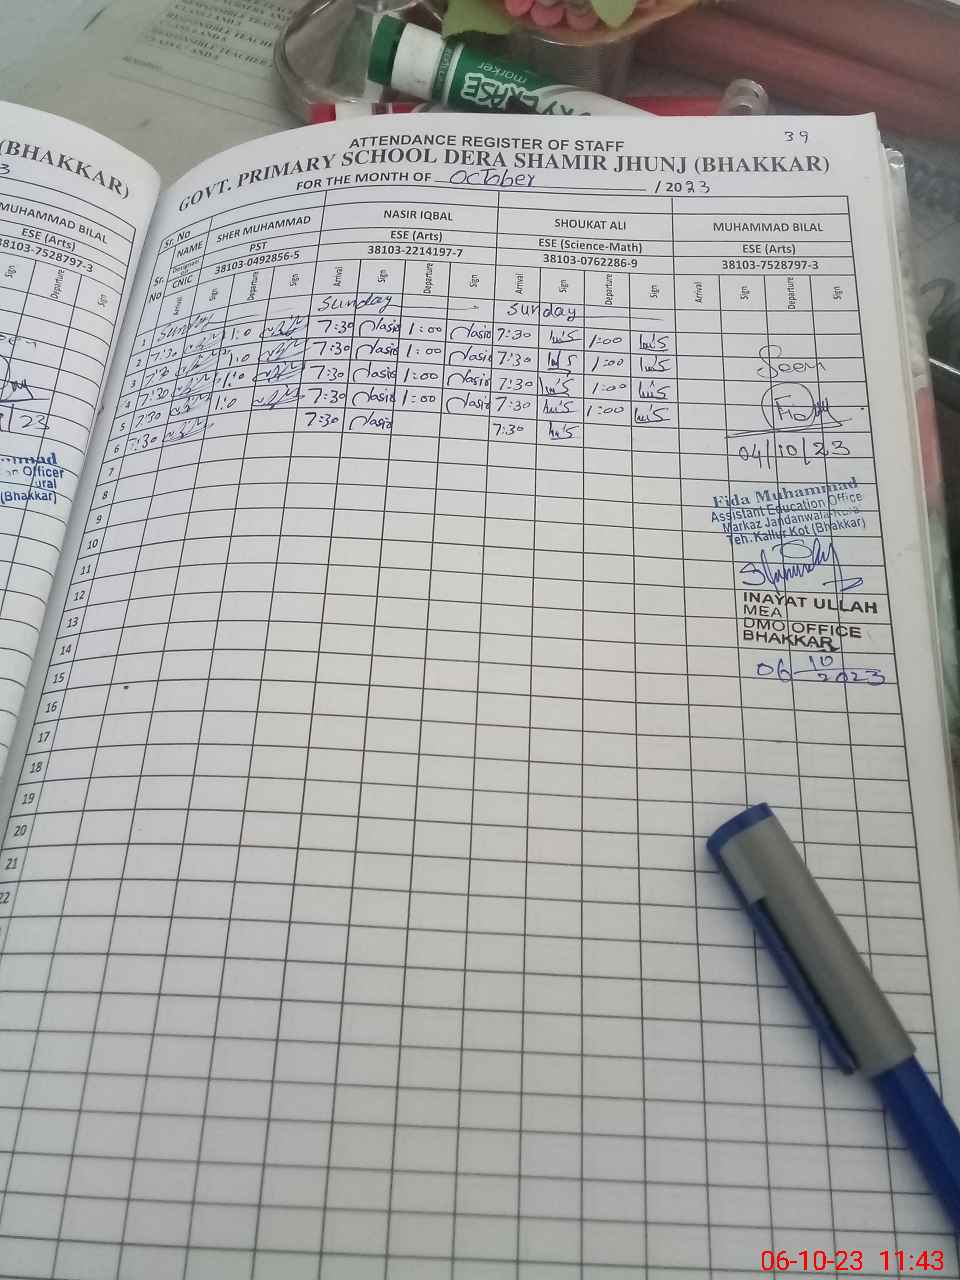 39
ATTENDANCE REGISTER OF STAFF
GOVT. PRIMARY SCHOOL DERA SHAMIR JHUNJ (BHAKKAR)
FOR THE MONTH OF October / 2023
(BHAKKAR)
3
MUHAMMAD BILAL
ESE (Arts)
38103-7528797-3
Sign Departure Sign
Sr. No
NAME SHER MUHAMMAD NASIR IQBAL SHOUKAT ALI MUHAMMAD BILAL
PST ESE (Arts) ESE (Science-Math) ESE (Arts)
CNIC 38103-0492856-5 38103-2214197-7 38103-0762286-9 38103-7528797-3
Sr. No Arrival Sign Departure Sign Arrival Sign Departure Sign Arrival Sign Departure Sign Arrival Sign Departure Sign
1 Sunday Sunday Sunday
2 7:30 1:0 7:30 Nasir 1:00 Nasir 7:30 1:00
3 7:30 1:0 7:30 Nasir 1:00 Nasir 7:30 1:00
4 7:30 1:0 7:30 Nasir 1:00 Nasir 7:30 1:00
5 7:30 1:0 7:30 Nasir 1:00 Nasir 7:30 1:00
6 7:30 7:30 Nasir 7:30
Seen
04/10/23
Fida Muhammad
Assistant Education Office
Markaz Jandanwala Rural
Teh. Kallur Kot (Bhakkar)
INAYAT ULLAH
MEA
DMO OFFICE
BHAKKAR
06 10 2023
/23
Officer
ural
(Bhakkar)
7
8
9
10
11
12
13
14
15
16
17
18
19
20
21
22
marker
06-10-23 11:43